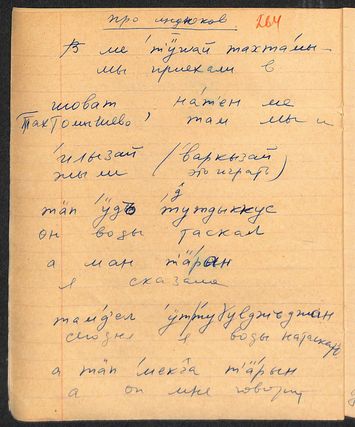 про индюков 264
В ме' тӱжай тахтамы-
мы приехали в
шоват на́тен ме
Тахтомышево' там мы и
и́лызай (варкызай
жили это играть)
тап ӱдъ' туждыккус
он воды таскал
а ман тӓ́рән
я сказала
там
сегодня я воды натаскаю
а тап ме́кга тӓ́рын
а он мне говорит